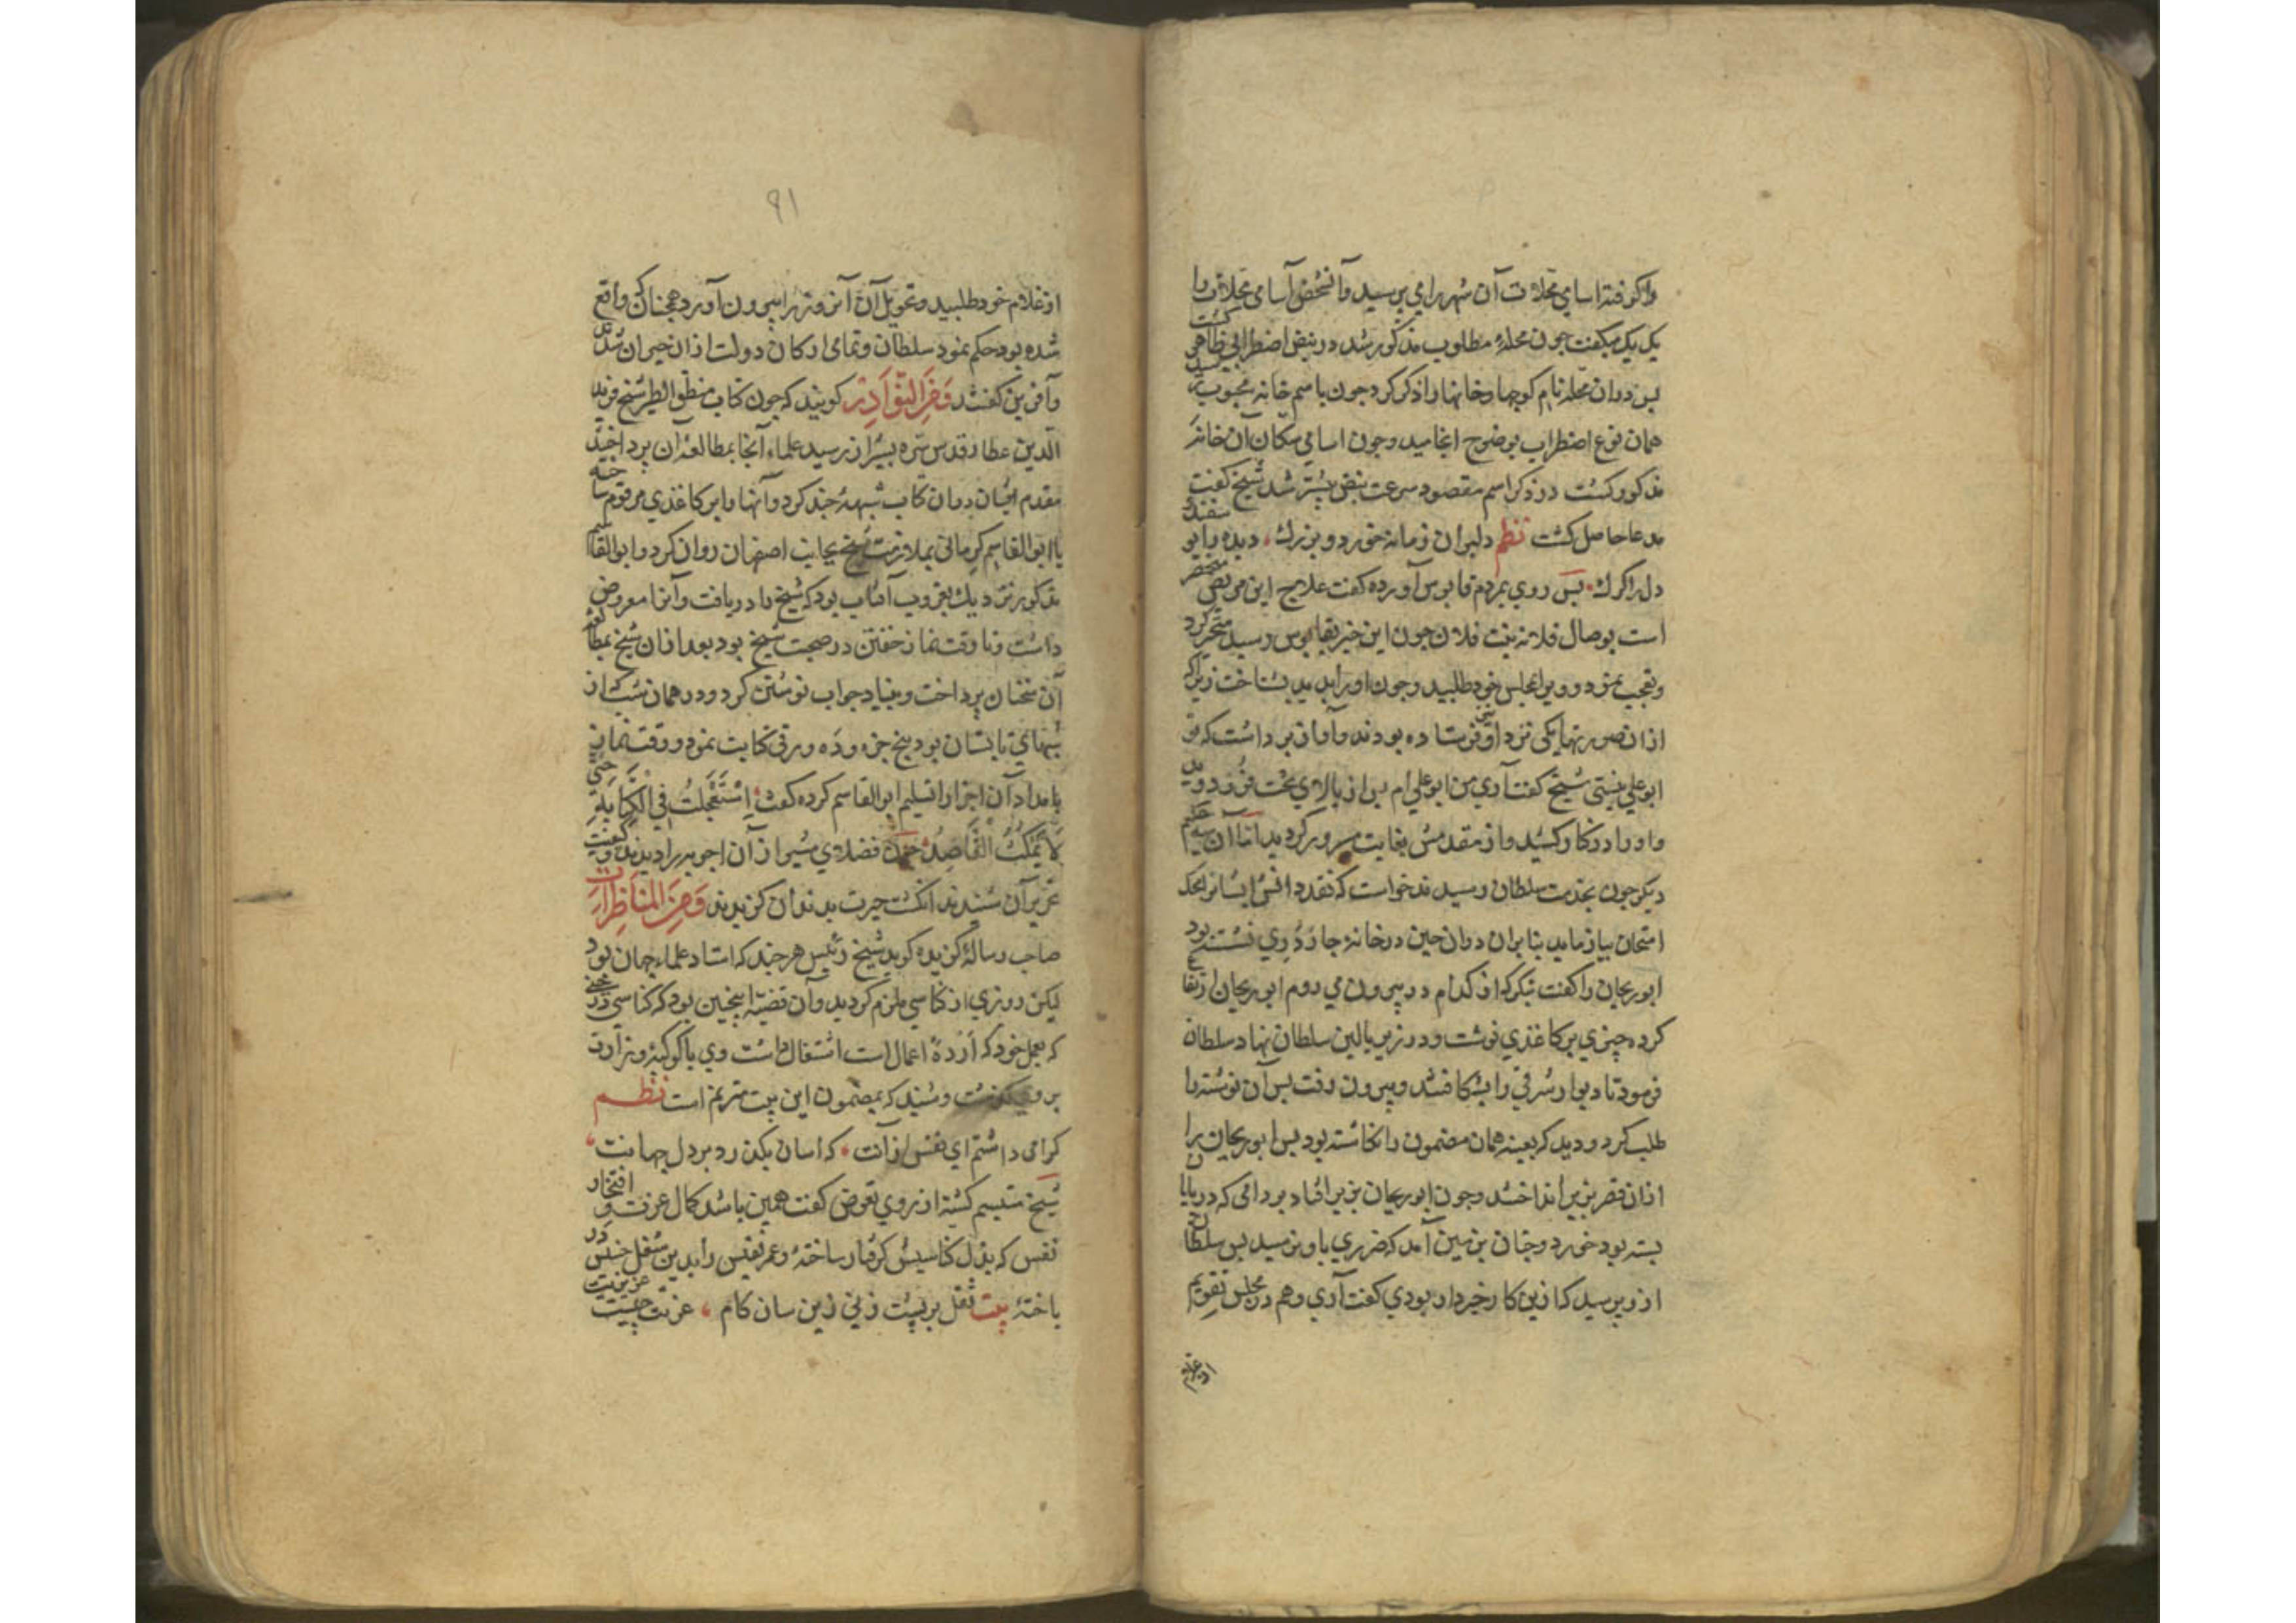 را گرفته اسامی محلات آن شهر را می پرسید و آن شخص آسامی محلات را
یک یک میگفت چون محلهٔ مطلوب مذکور شد در نبض اضطرابی ظاهر گشت
پس در آن محله نام کوچها و خانها را ذکر کرد چون باسم خانه محبوب رسید
همان نوع اضطراب بوضوح انجامید و چون اسامی سکان آن خانه
مذکور گشت در ذکر اسم مقصود سرعت نبض بیشتر شد شیخ گفت
مدعا حاصل گشت نظم دلبران زمانه خورد و بزرگ، دیده را یوسفند
دل را گرگ. پس روی بمردم قابوس آورده گفت علاج این مریض منحصر
است بوصال فلانه بنت فلان چون این خبر بقابوس رسید متحیر گردید
و تعجب نمود و ویرا بمجلس خود طلبید و چون او را بدید بشناخت زیرا که
از آن صورتها یکی نزد او فرستاده بودند و آواز برداشت که تو
ابو علی نیستی شیخ گفت آری من ابو علی ام پس از بالای تخت فرود دوید
و او را در کنار کشید و از مقدمش بغایت مسرور گردید اما آن سه حکیم
دیگر چون بخدمت سلطان رسیدند خواست که نقد دانش ایشانرا بمحک
امتحان بیازماید بنابران در آن حین در خانهٔ چار دری نشسته بود
ابو ریحان را گفت بنگر که از کدام در بیرون می روم ابو ریحان ارتفاع
کرده چیزی بر کاغذی نوشت و در زیر بالین سلطان نهاد سلطان
فرمود تا دیوار شرقی را بشکافتند و بیرون رفت پس آن نوشته را
طلب کرد و دید که بعینه همان مضمون را نگاشته بود پس ابو ریحان را
از آن قصر بزیر انداختند و چون ابو ریحان بزیر افتاد بر دامی که در پایان
بسته بود خورد و چنان بزمین آمد که ضرری باو نرسید پس سلطان
از وی پرسید که ازین کار خبردار بودی گفت آری و هم در مجلس تقویم
از غلام
۹۱
از غلام خود طلبید و تحویل آن آن روز را بیرون آورد همچنانکه واقع
شده بود حکم نمود سلطان و تمامی ارکان دولت از آن حیران شدند
و آفرین گفتند وَمِنَ النَّوَادِرِ گویند که چون کتاب منطق الطیر شیخ فرید
الدین عطار قدس سره بشیراز رسید علماء آنجا بمطالعهٔ آن پرداختند
مقدم ایشان در آن کتاب شبههٔ چند کرد و آنها را بر کاغذی مرقوم ساخته
با ابو القاسم کرمانی بملازمت شیخ بجانب اصفهان روان کرد و ابو القاسم
مذکور نزدیک بغروب آفتاب بود که شیخ را دریافت و آنرا معروض
داشت و تا وقت نماز خفتن در صحبت شیخ بود بعد از آن شیخ بمطالعه
آن سخنان پرداخت و بنیاد جواب نوشتن کرد و در همان شب که از
شبهای تابستان بود پنج جزو و ده ورقی کتابت نمود و وقت نماز
بامداد آن اجزا را تسلیم ابو القاسم کرده گفت اِسْتَعْجَلْتُ فِی الْکِتَابَةِ حتی
لَا یَمْکُثُ الْقَاصِدُ چون فضلای شیراز آن اجوبه را دیدند و کیفیت
تحریر آن شنیدند انگشت حیرت بدندان گزیدند وَمِنَ الْمُنَاظَرَاتِ
صاحب رسالهٔ گزیده گوید شیخ رئیس هر چند که استاد علماء جهان بود
لیکن روزی از کناسی ملزم گردید و آن قضیه اینچنین بود که کناسی در حینی
که بعمل خود که ارذهٔ اعمال است اشتغال داشت وی با کوکبهٔ وزارت
بر وی گذشت و شنید که بمضمون این بیت مترنم است نظم
گرامی داشتم ای نفس از آنت. که آسان بگذرد بر دل جهانت،
شیخ متبسم گشته از روی تعرض گفت همین باشد کمال عزت و افتخار
نفس که بذل کناسیش گرفتار ساختهٔ و عمر نفیس را بدین شغل خسیس در
باختهٔ بیت ثقل بر پشت زنی زین سان گام، عزت چیست عزیزیت